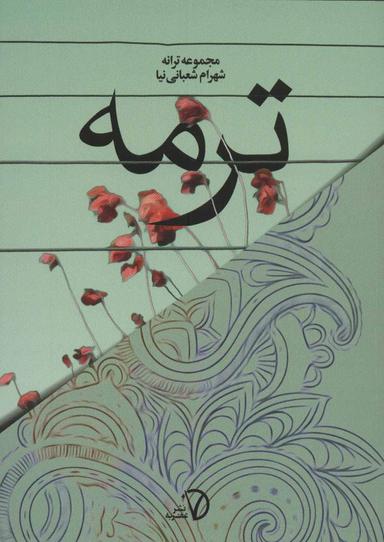 مجموعه ترانه
شهرام شعبانی نیا
ترمه
نشر